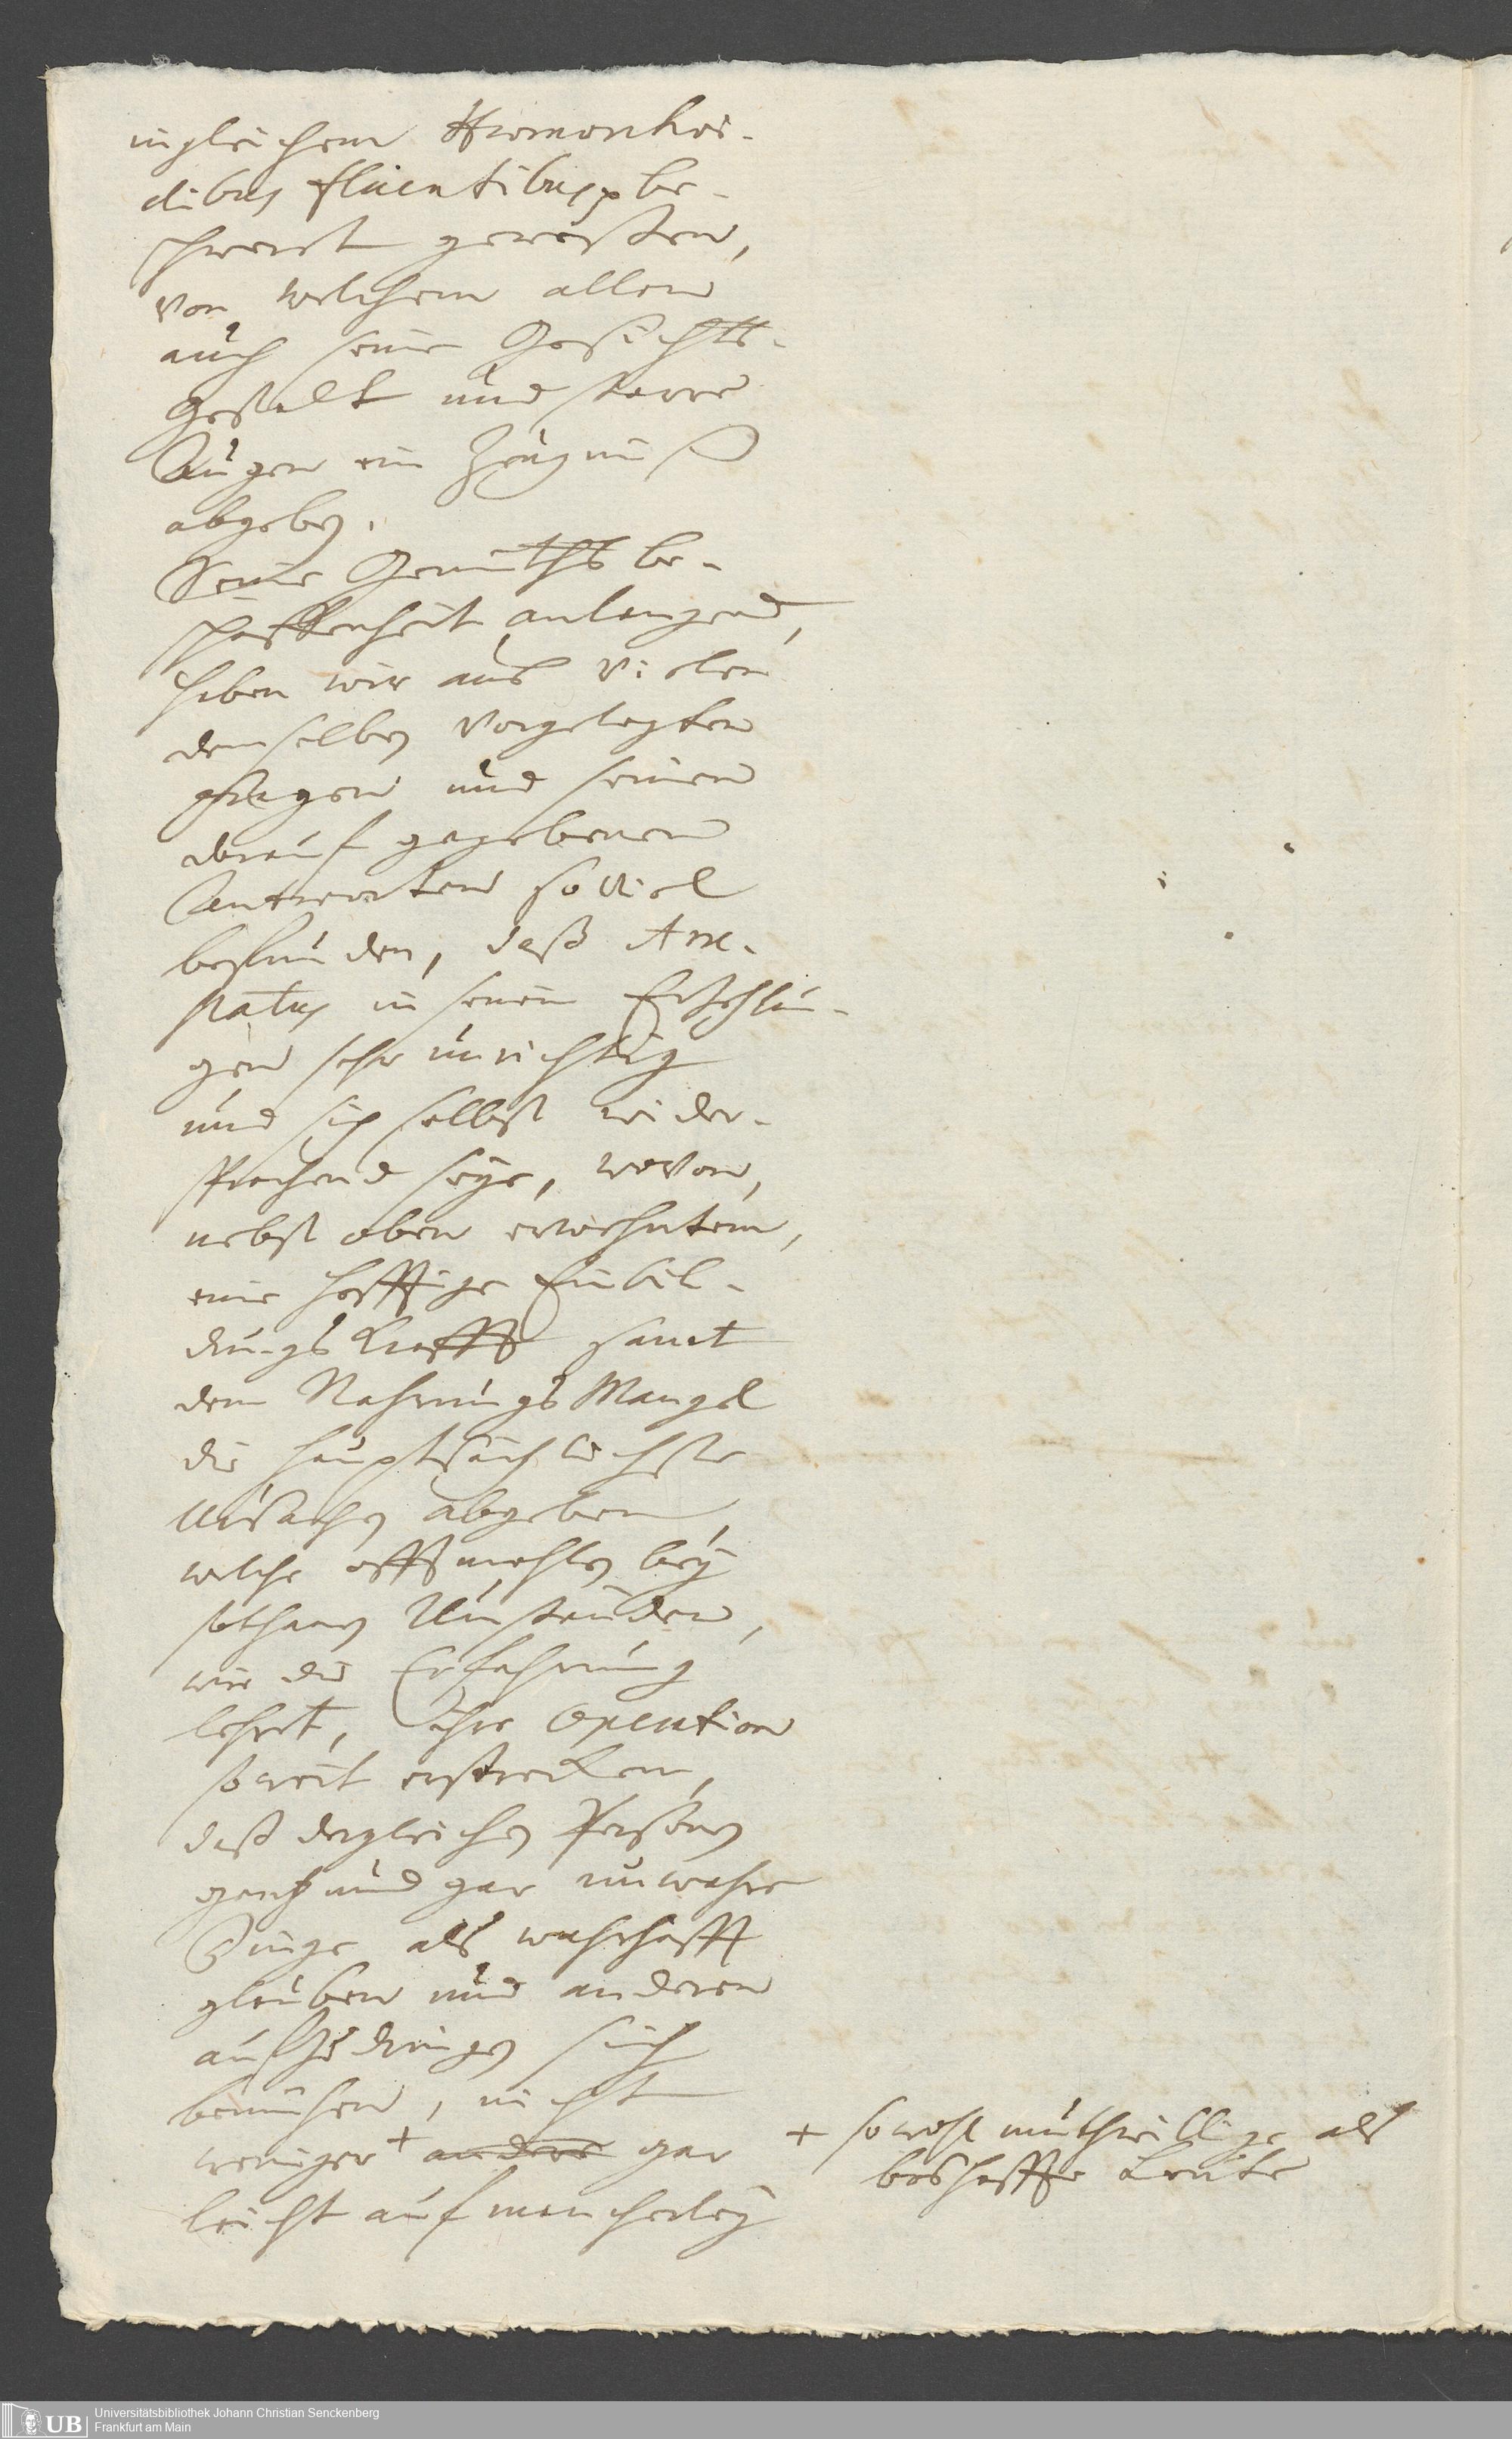 ingleichem Hæmorrhoi-
dibus fluentibus pp be-
schwert geweßen,
von welchem allem
auch seine Gesichts-
Gestalt und starre
Augen ein Zeugniß
abgeben.
Seine Gemüths be-
schaffenheit anlangend,
haben wir aus vielen
demselben vorgelegten
Fragen und seinen
darauf gegebenen
Antworten soviel
befunden, daß Arre-
status in seinen Erzehlun-
gen sehr unrichtig
und sich selbst wider-
sprechend seye, wovon,
nebst oben erwehntem,
eine hefftige Einbil-
dungs Krafft samt
dem Nahrungs Mangel
die hauptsächlichste
Ursachen abgeben,
welche offtmahlen bey
sothanen Umständen,
wie die Erfahrung
lehret, ihre Operation
soweit erstrecken,
daß dergleichen Persohnen
gantz und gar unwahre
Dinge als wahrhafft
glauben und anderen
aufzudringen sich
bemühen, nicht
weniger + andere gar
leicht auf mancherley
+ sowohl muthwillige als
boshaffte Leute
Universitätsbibliothek Johann Christian Senckenberg
Frankfurt am Main
UB